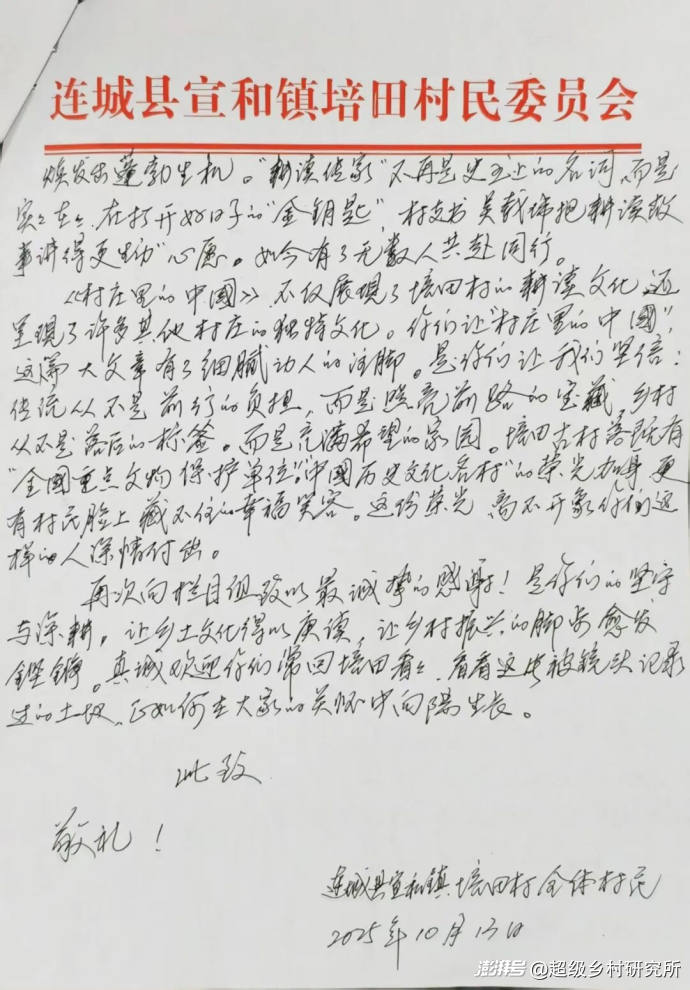 连城县宣和镇培田村民委员会
焕发出蓬勃生机。“耕读传家”不再是史书上的名词,而是
实々在々在打开好日子的“金钥匙”,村支书吴载 把耕读故
事讲得更生动”心愿。如今有了无数人共赴同行。
《村庄里的中國》不仅展现了培田村的耕读文化,还
呈现了许多其他村庄的独特文化。你们让“村庄里的中國”
这篇大文章有了细腻动人的注脚。是你们让我们坚信:
传统从不是前行的负担,而是照亮前路的宝藏,乡村
从不是落后的标签。而是充满希望的家园。培田古村落既有
“全國重点文物保护单位”“中國历史文化名村”的荣光加身,更
有村民脸上藏不住的幸福笑容。这份荣光离不开象你们这
样的人深情付出。
再次向栏目组致以最诚挚的感谢!是你们的坚守
与深耕,让乡土文化得以赓续,让乡村振兴的脚步愈发
铿锵。真诚欢迎你们常回培田看々,看看这片被镜头记录
过的土地,正如何在大家的关怀中向阳生长。
此致
敬礼!
连城县宣和镇培田村全体村民
2025年10月13日
澎湃号@超级乡村研究所